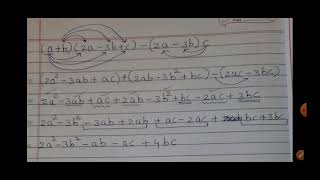 (a+b)(2a-3b+c)-(2a-3b)c
= (2a²-3ab+ac)+(2ab-3b²+bc)-(2ac-3bc)
= 2a²-3ab+ac+2ab-3b²+bc-2ac+3bc
= 2a²-3b²-3ab+2ab+ac-2ac+bc+3bc
= 2a²-3b²-ab-ac+4bc